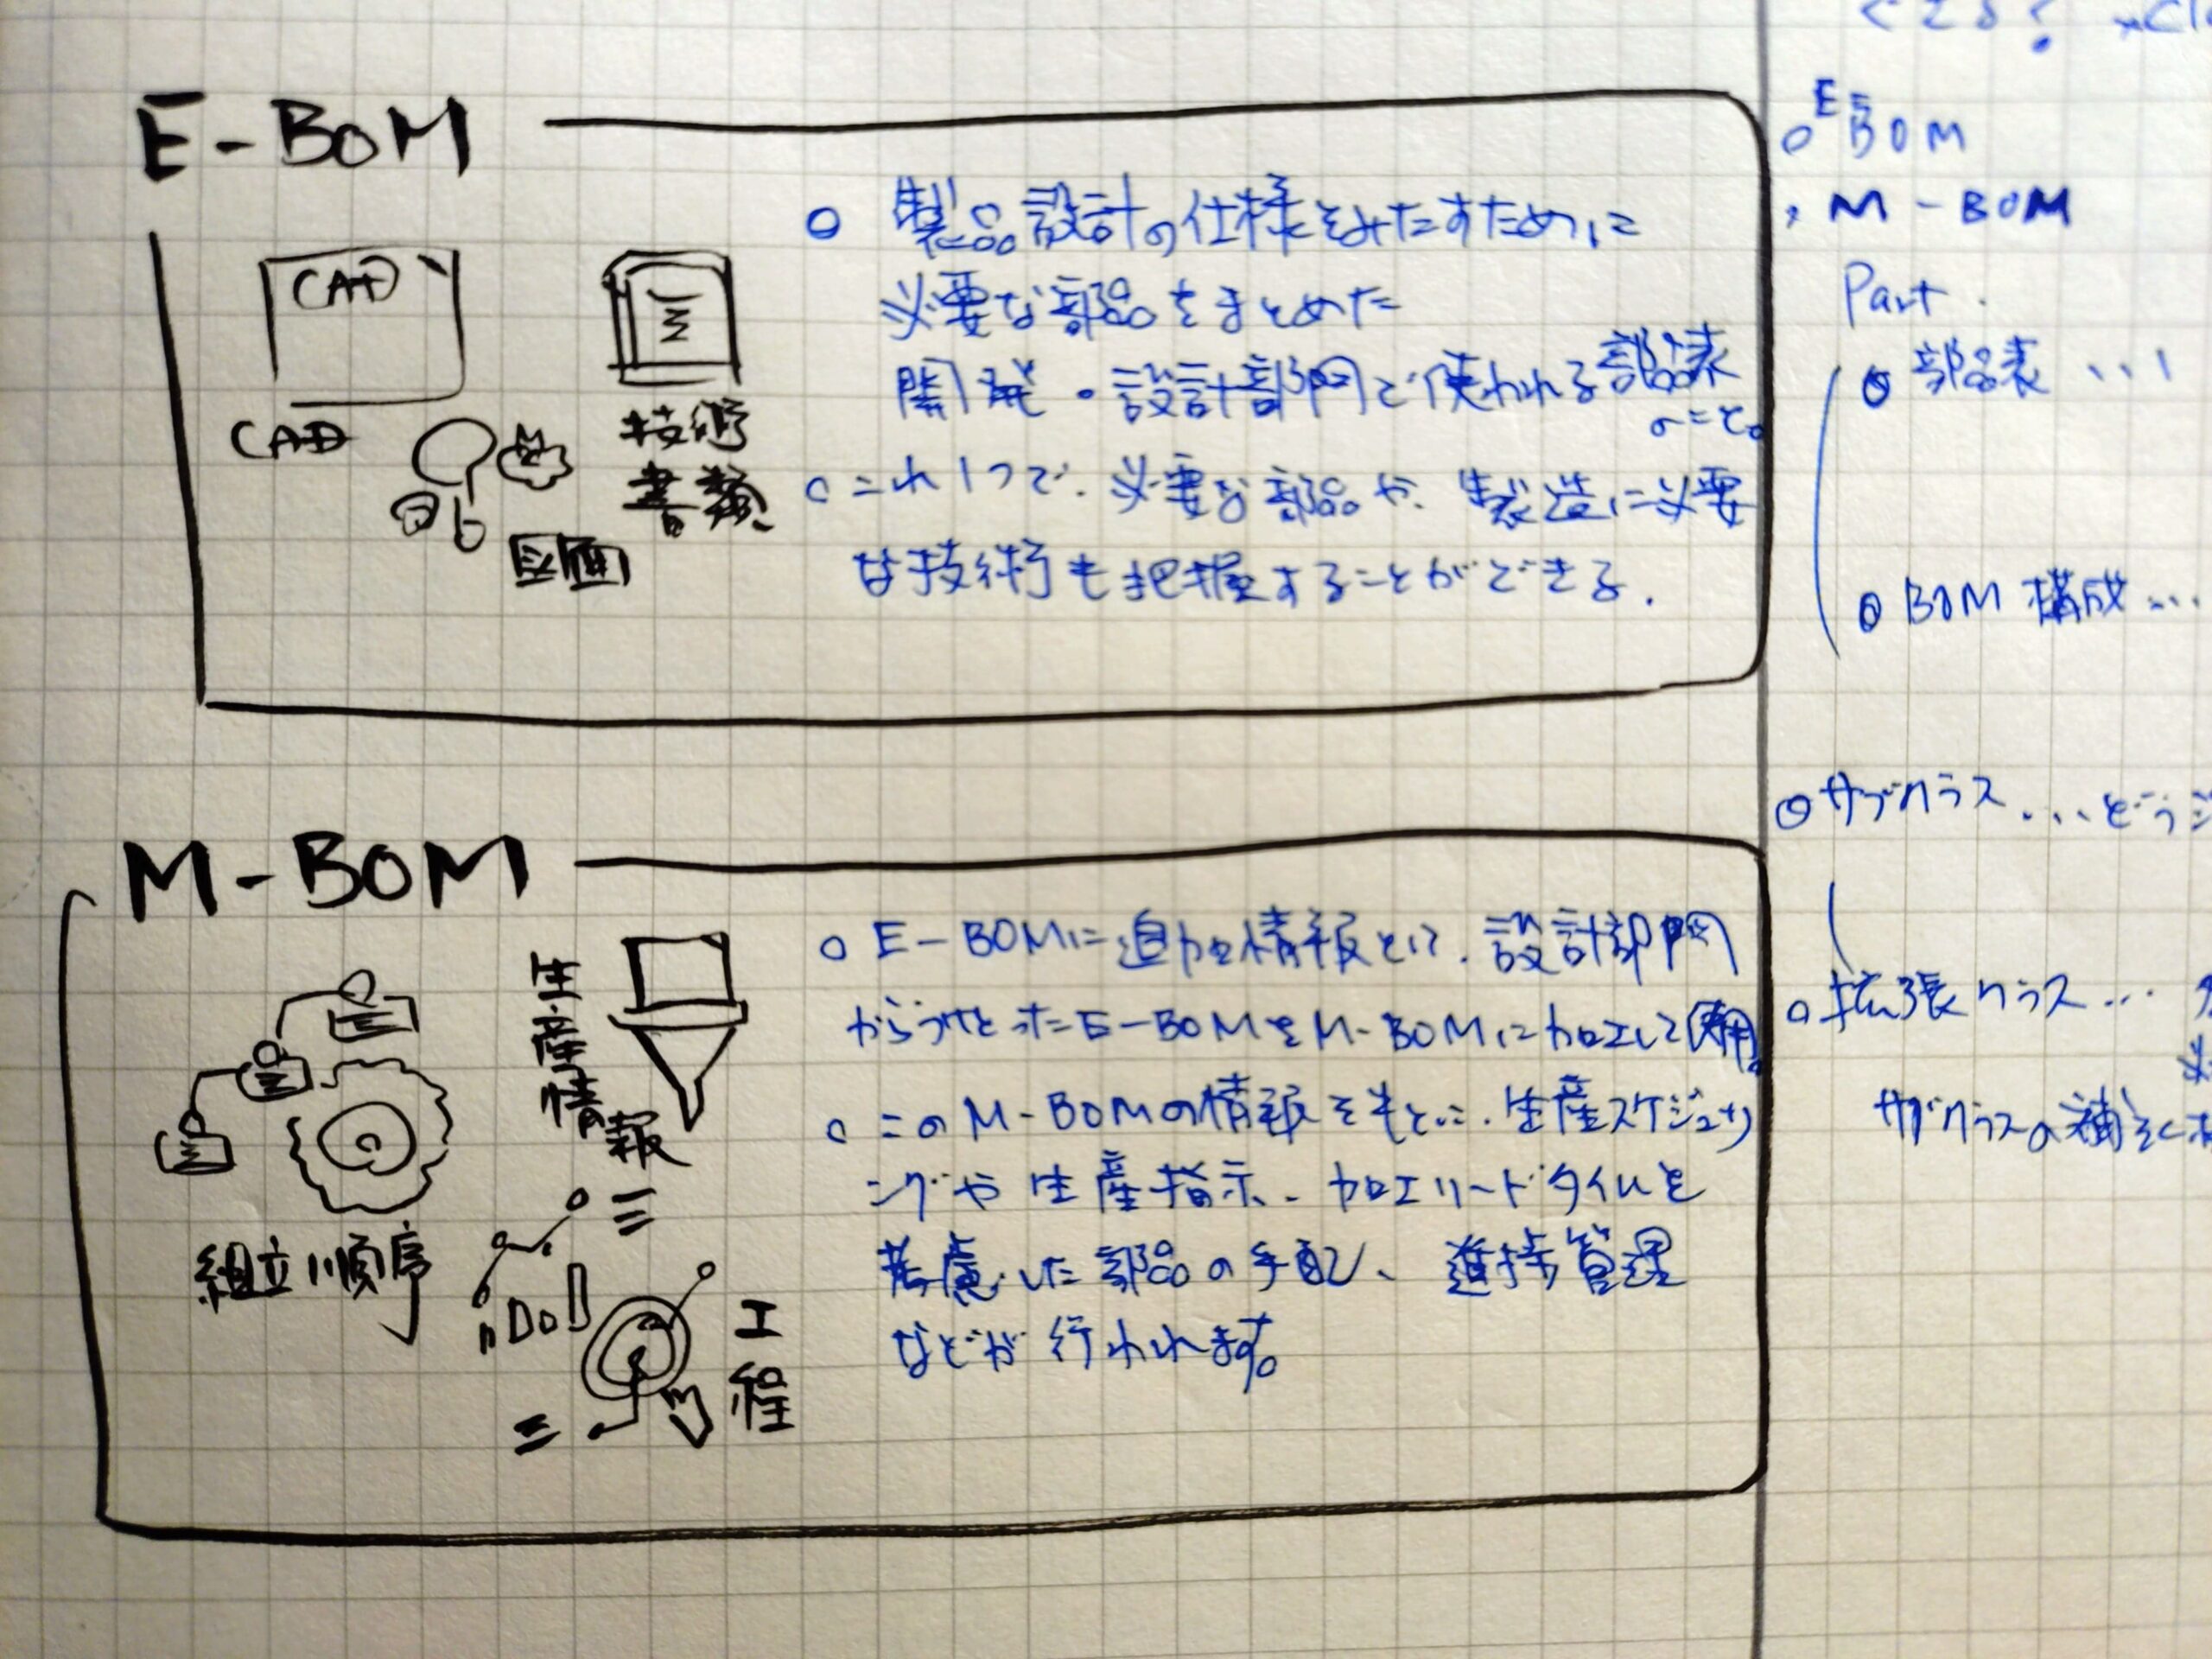 E-BOM
CAD
CAD
技術
書類
図面
○ 製品設計の仕様をみたすために
必要な部品をまとめた
開発・設計部門で使われる部品表
のこと。
○これ1つで、必要な部品や、製造に必要
な技術も把握することができる.
M-BOM
生産情報
組立順序
工程
○ E-BOMに追加情報として、設計部門
からうけとったE-BOMをM-BOMに加工して使用。
○このM-BOMの情報をもとに、生産スケジューリ
ングや生産指示、加工リードタイムを
考慮した部品の手配、進捗管理
などが行われます。
○E BOM
M-BOM
Part.
○部品表 ...
○BOM 構成...
○サブクラス...どう
○拡張クラス...
サブクラスの補